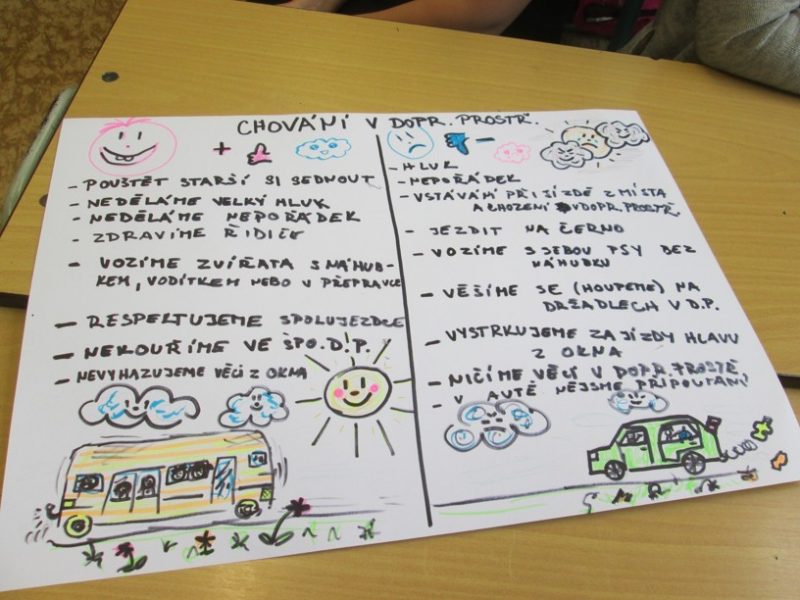 CHOVÁNÍ V DOPR. PROSTŘ.
+
- POUŠTĚT STARŠÍ SI SEDNOUT
- NEDĚLÁME VELKÝ HLUK
- NEDĚLÁME NEPOŘÁDEK
- ZDRAVÍME ŘIDIČE
- VOZÍME ZVÍŘATA S NÁHUB-
KEM, VODÍTKEM NEBO V PŘEPRAVCE
- RESPEKTUJEME SPOLUJEZDCE
- NEKOUŘÍME VE SPO.D.P.!
- NEVYHAZUJEME VĚCI Z OKNA
-
- HLUK
- NEPOŘÁDEK
- VSTÁVÁNÍ PŘI JÍZDĚ Z MÍSTA
A CHOZENÍ V DOPR. PROSTŘ.
- JEZDIT NA ČERNO
- VOZÍME S SEBOU PSY BEZ
NÁHUBKU
- VĚŠÍME SE (HOUPEME) NA
DRŽADLECH V D.P.
- VYSTRKUJEME ZA JÍZDY HLAVU
Z OKNA
- NIČÍME VĚCI V DOPR. PROSTŘ
- V AUTĚ NEJSME PŘIPOUTÁNI